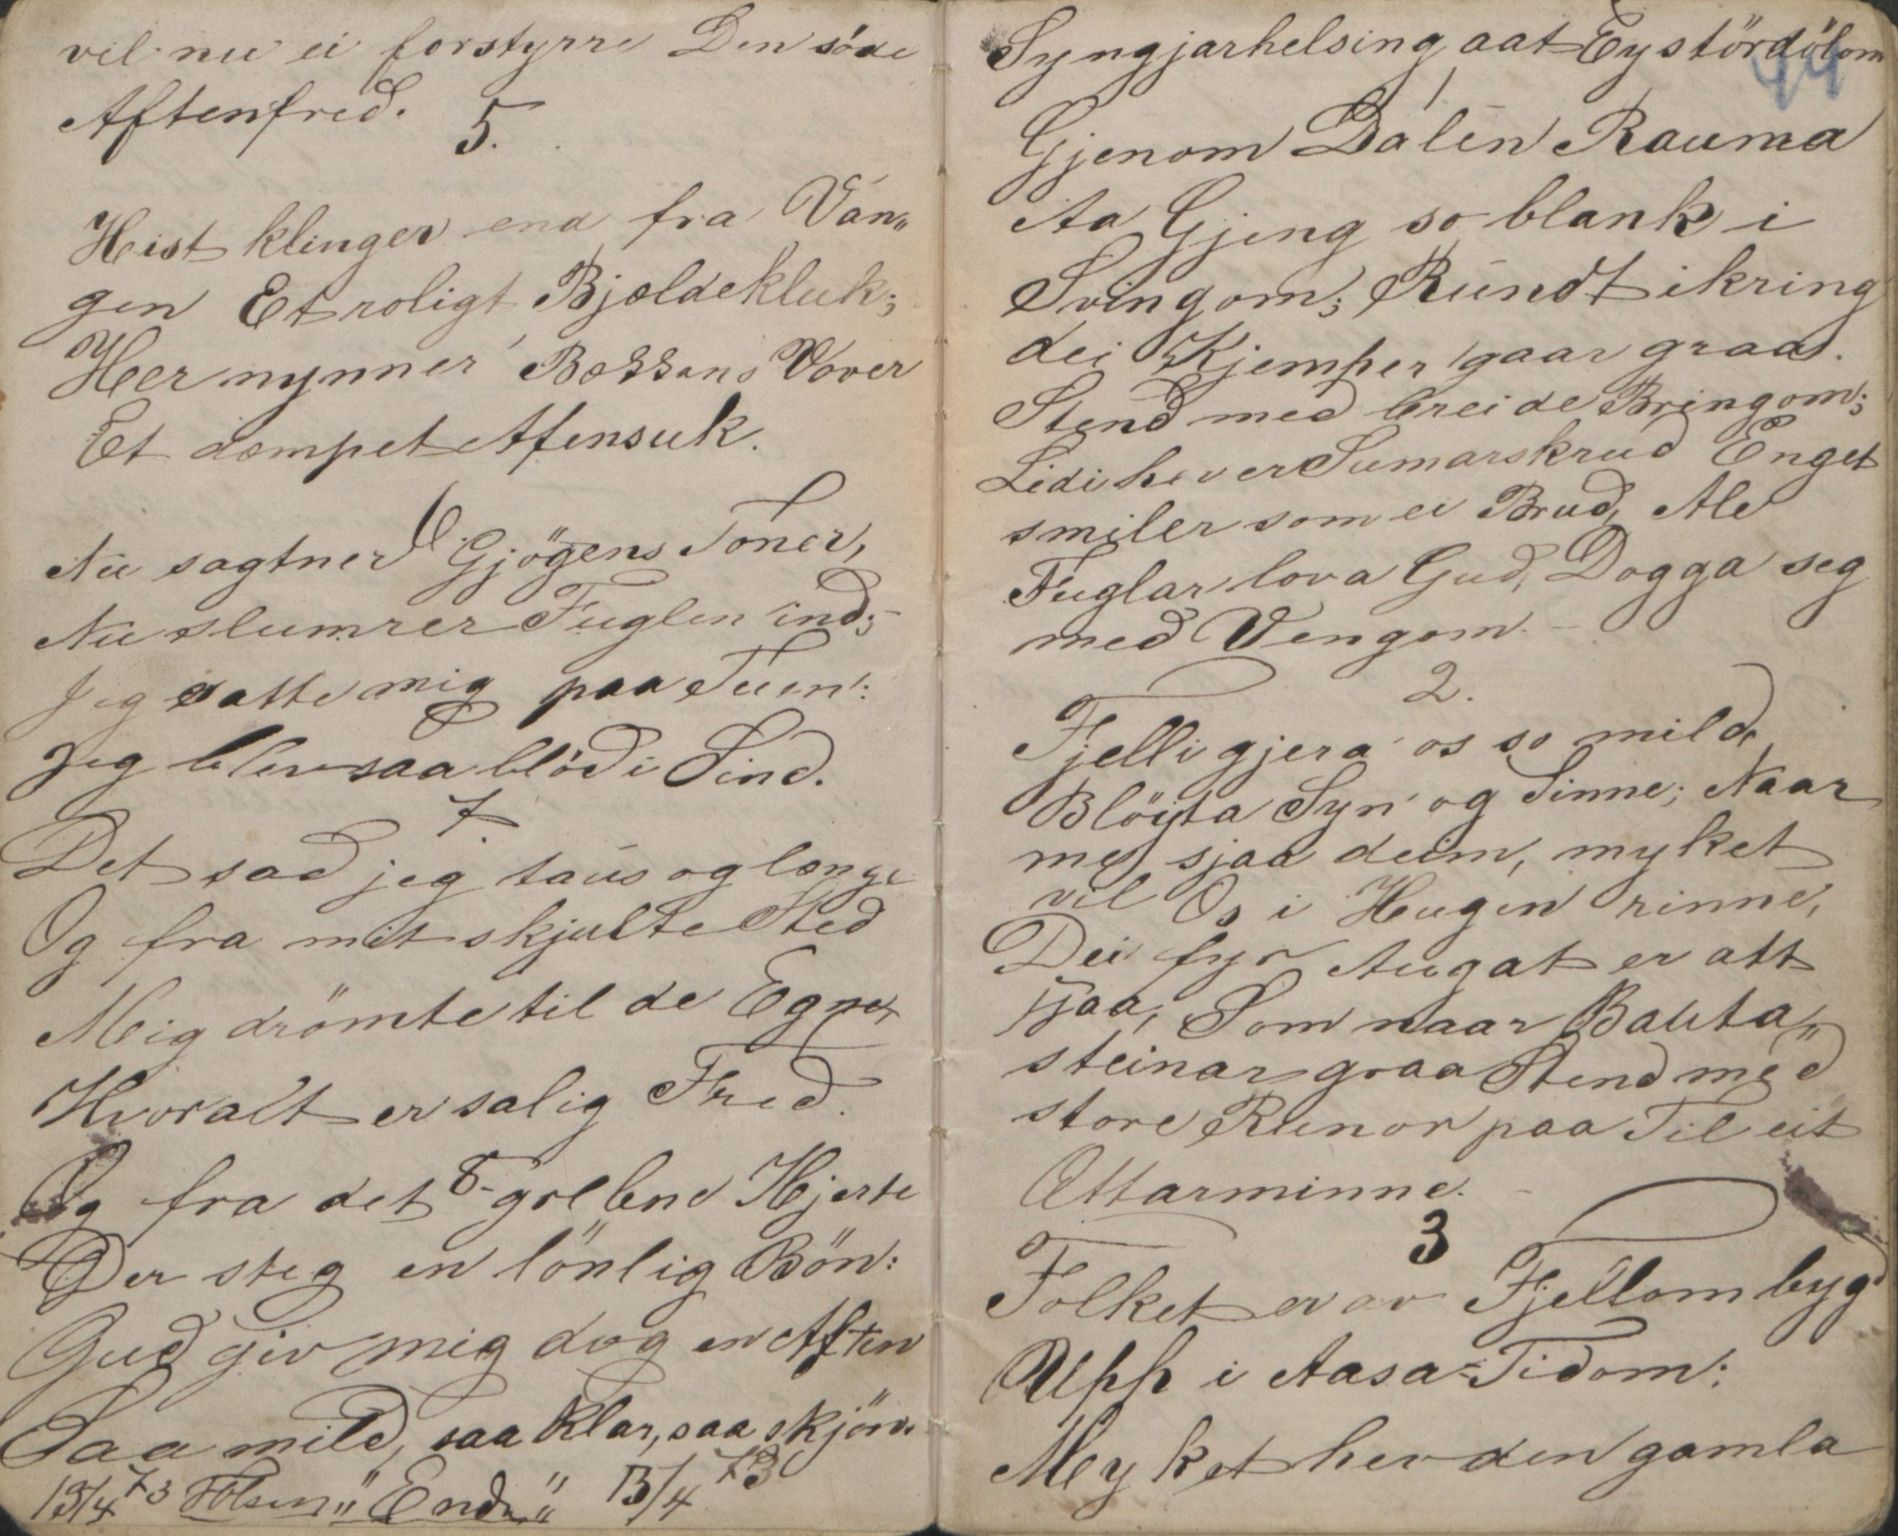 vil nu ei forstyrre Den söde
Aftenfred.
5.
Hist klinger end fra Van„
gen Et roligt Bjældekluk;
Her nynner Bækkens Vover
Et dæmpet Afensuk.
6
Nu sagtner Gjögens Toner,
Nu slumrer Fuglen ind;
Jeg satte mig paa Tuen:
Jeg blev saa blöd i Sind.
7
Det sad jeg taus og længe
Og fra mit skjulte Sted
Mig drömte til de Egne
Hvor alt er salig Fred.
8-
Og fra det grebne Hjerte
Der steg en lönlig Bön:
Gud giv mig dog en Aften
Saa mild, saa klar, saa skjön.
13/4 73 „Ende" 13/4 73
Syngjarhelsing aat Eystördölom
44
1
Gjenom Dalen Rauma
Aa Gjeng so blank i
Svingom; Rundt ikring
dei Kjemper gaar graa.
Stend med breide Bringom;
Lidi hever Sumarskrud Enget
smiler som ei Brud, Ale
Fuglar lova Gud, Dogga seg
med Vengom.
2.
Fjelli gjera os so mild,
Blöyta Syn og Sinne; Naar
me sjaa deim, myket
vil Os i Hugen rinne,
Dei fyr Augat er att
sjaa, Som naar Bauta„
steinar graa Stend med
store Runor paa Til eit
Ættarminne.
3
Folket er av Fjellom byg
Upp i Aasa-Tidom:
Myket hev den gamla